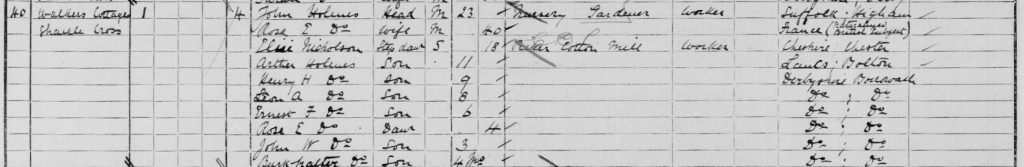 40 Walkers Cottages 1 4 John Holmes Head M 23 Nursery Gardener Worker Suffolk; Higham
Shackle Cross Rose E Do Wife M 40 France (Naturalised British Subject)
Elsie Nicholson Stepdaur S 18 Cotton Mill Worker Cheshire Chester
Arther Holmes Son 11 Lancs; Bolton
Henry H Do Son 9 Derbyshire
Leon A Do Son 8 Do ; Do
Ernest F Do Son 6 Do ; Do
Rose E Do Daur 4 Do ; Do
John W Do Son 3 Do ; Do
Do Son 4 Mo Do ; Do